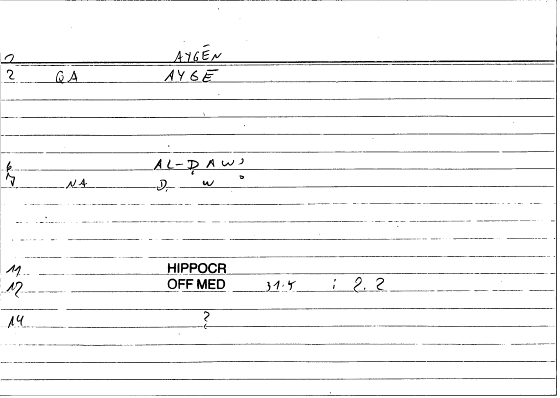 2 AYGĒN
2 QA AYGĒ
6 AL-ḌAWʾ
7 NA Ḍ W ʾ
11 HIPPOCR
12 OFF MED 31.5 i 2.2
14 ?